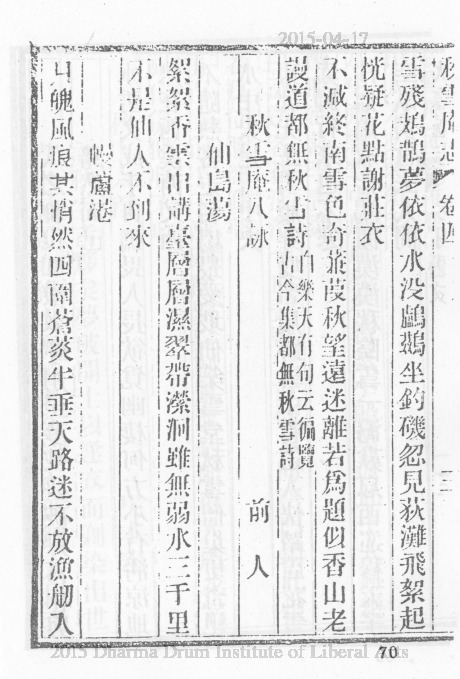 2015-04-17
秋雪庵志 卷四 三
雪殘鳷鵲夢依依水没鸕鷀坐釣磯忽見荻灘飛絮起
恍疑花點謝莊衣
不减終南雪色奇蒹葭秋望遠迷離若爲題似香山老
謾道都無秋雪詩白樂天有句云徧覽古今集都無秋雪詩
秋雪庵八詠 前人
仙島蕩
絮絮香雲出講臺層層濕翠帶瀠洄雖無弱水三千里
不是仙人不到來
幔蘆港
月魄風痕其悄然四圍蒼莢半垂天路迷不放漁舠入
70
2015 Dharma Drum Institute of Liberal Arts